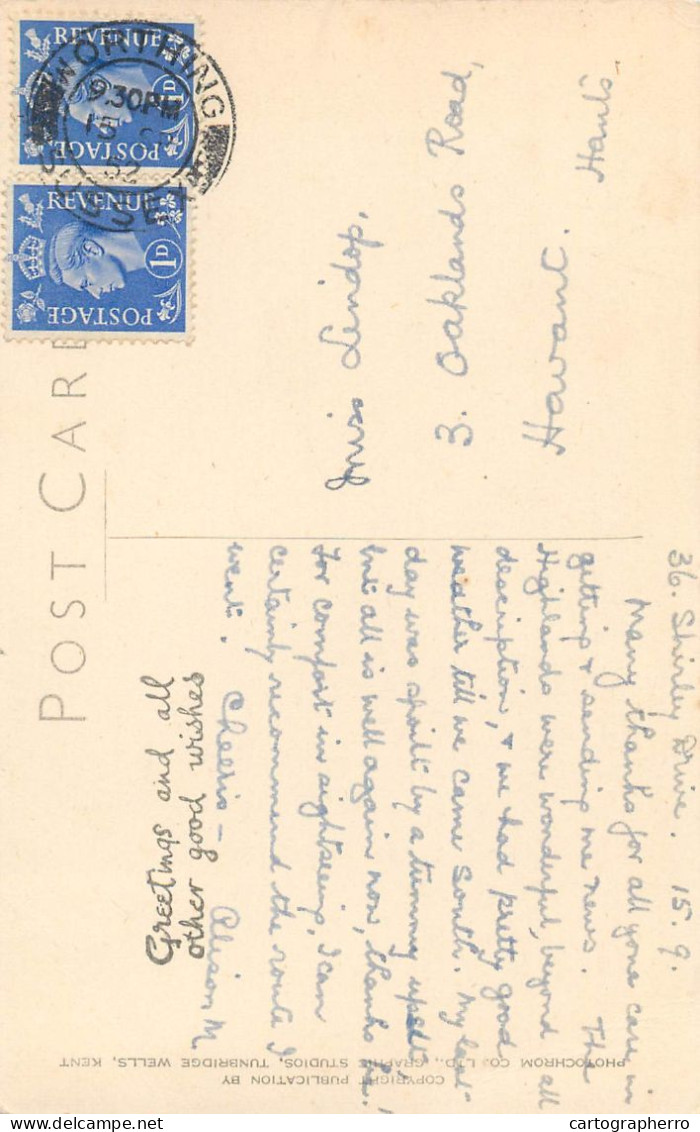 POST CARD
Greetings and all
other good wishes
36. Shirley Drive. 15.9.
Many thanks for all your care in
getting & sending me news. The
Highlands were wonderful, beyond all
description, & we had pretty good
weather till we came South. My last
day was spoilt by a tummy upset,
but all is well again now, thanks
For comfort in sightseeing, I can
certainly recommend the route I
went. Cheerio —
Alison M
Miss Lindop,
3. Oaklands Road,
Havant. Hants
REVENUE
POSTAGE
1D
REVENUE
POSTAGE
1D
WORTHING
9.30PM
15
52
SUSSEX
COPYRIGHT PUBLICATION BY
PHOTOCHROM CO. LTD., GRAPHIC STUDIOS, TUNBRIDGE WELLS, KENT
cartographerro